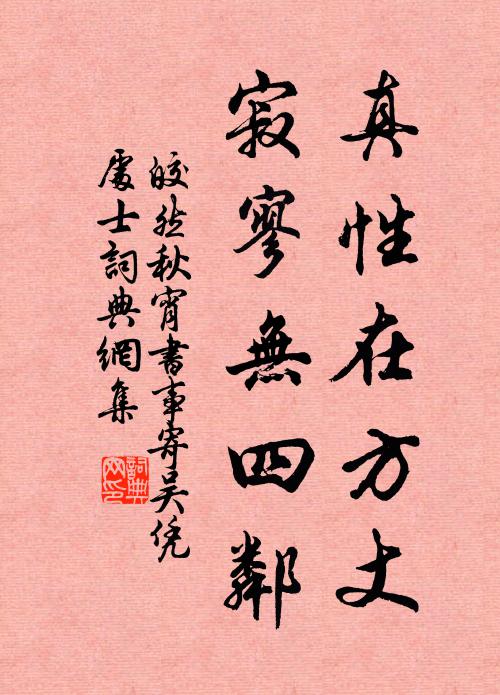 真性在方丈
寂寥無四鄰
皎然秋宵書事寄吳憑
處士詞典網集
詞典
网印